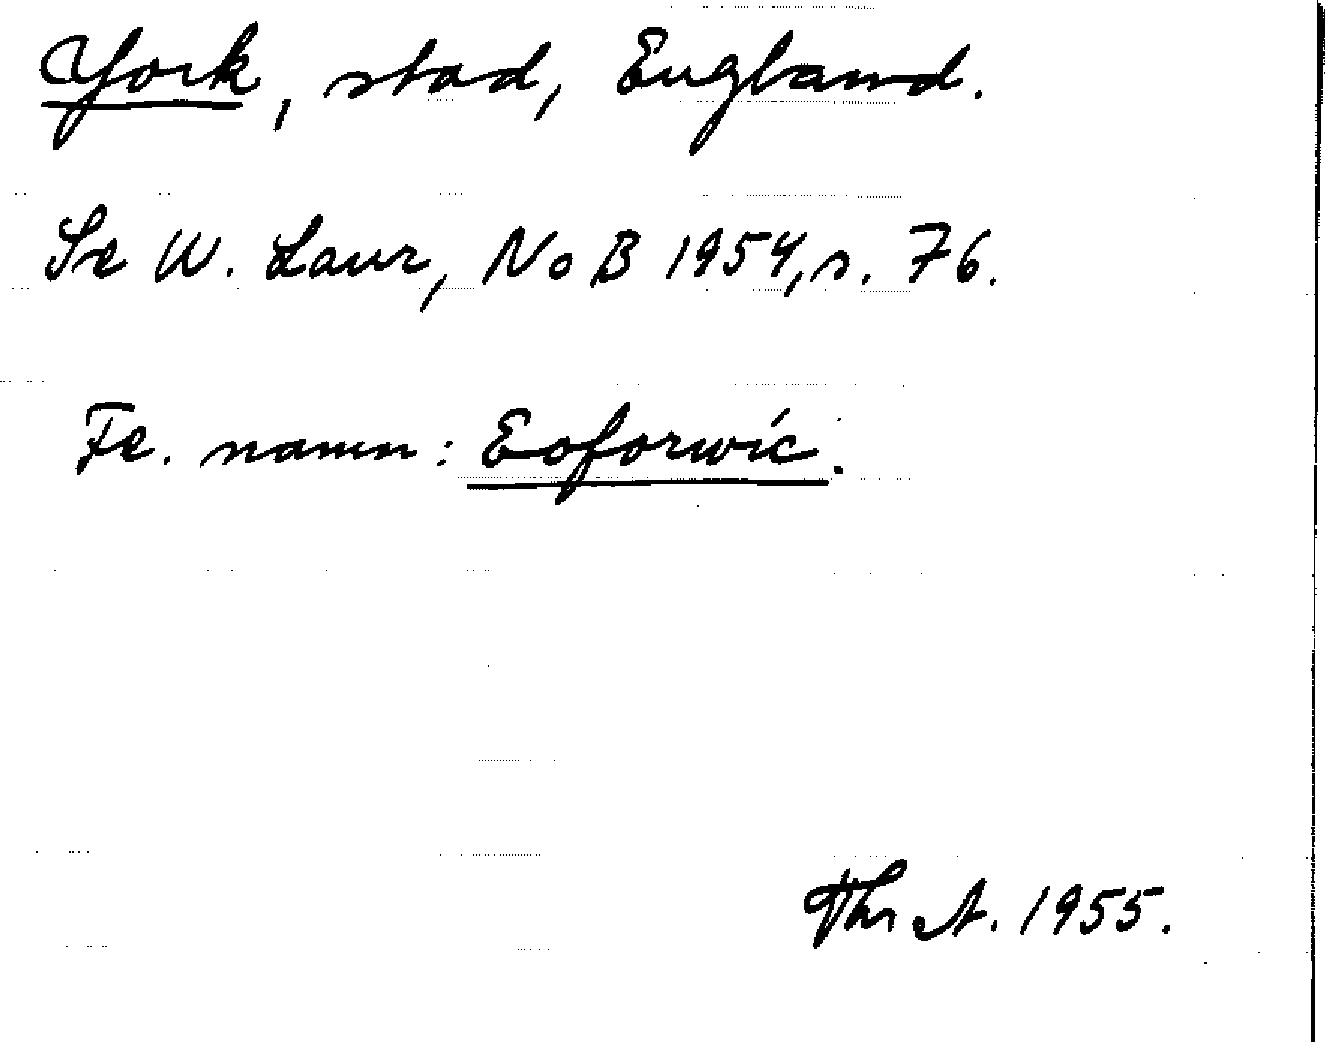 York, stad, England.
Se W. Laur, NoB 1954, s. 76.
Fe. namn: Eoforwic.
Thr A. 1955.